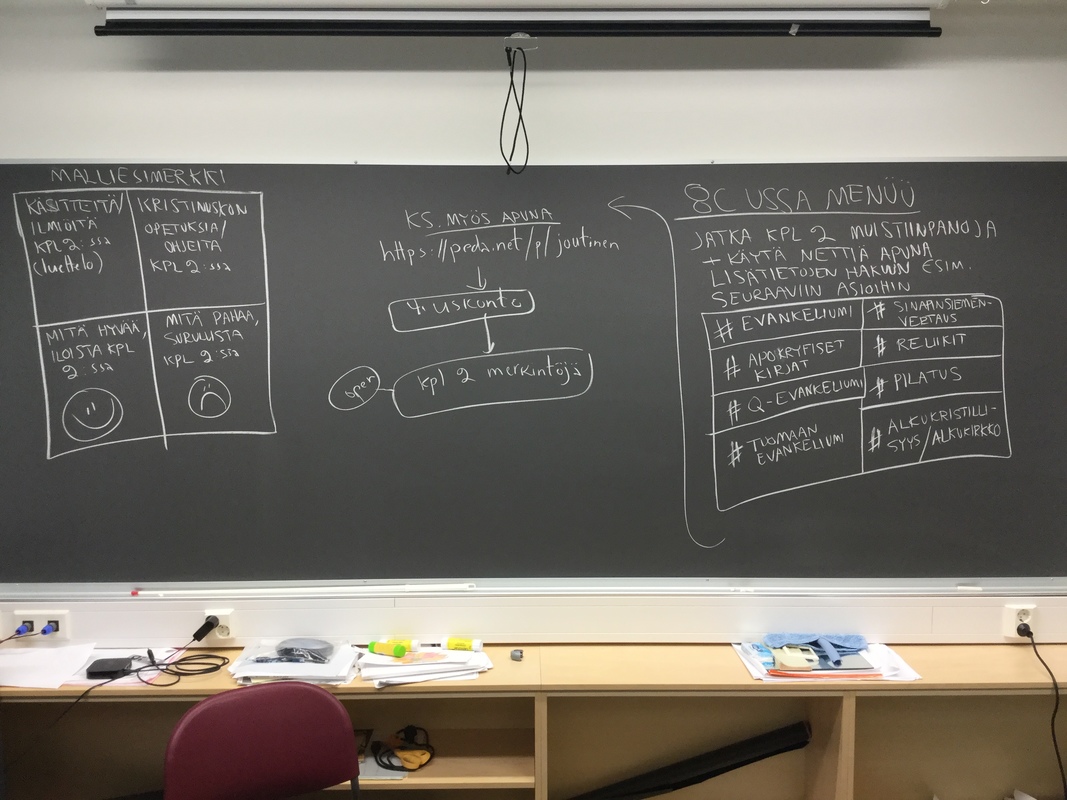 MALLIESIMERKKI
KÄSITTEITÄ/
ILMIÖITÄ
KPL 2:SSA
(luettelo)
KRISTINUSKON
OPETUKSIA/
OHJEITA
KPL 2:SSA
MITÄ HYVÄÄ,
ILOISTA KPL
2:SSA
MITÄ PAHAA,
SURULLISTA
KPL 2:SSA
KS. MYÖS APUNA
https://peda.net/p/joutinen
uskonto
open
kpl 2 merkintöjä
8C USSA MENÜÜ
JATKA KPL 2 MUISTIINPANOJA
+ KÄYTÄ NETTIÄ APUNA
LISÄTIETOJEN HAKUUN ESIM.
SEURAAVIIN ASIOIHIN
# EVANKELIUMI
# APOKRYFISET
KIRJAT
# Q-EVANKELIUMI
# TUOMAAN
EVANKELIUMI
# SINAPINSIEMEN-
VERTAUS
# RELIIKIT
# PILATUS
# ALKUKRISTILLI-
SYYS/ALKUKIRKKO